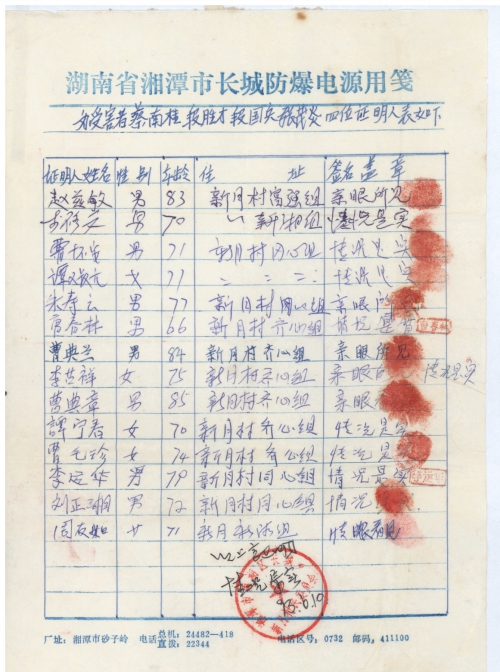 湖南省湘潭市长城防爆电源用笺
为受害者蔡南桂 段胜才 段国矣 四位证明人表如下
证明人姓名 性别 年龄 住 址 签名盖章
赵益敏 男 83 新月村富强组 亲眼所见
男 70 〃 新湘组 情况是实
曹 男 71 新月村同心组 情况是实
谭 女 71 〃 〃 〃 情况是实
朱寿云 男 77 新月村同心组 亲眼所见
曹春林 男 66 新月村齐心组 情况是实
曹典兰 男 84 新月村齐心组 亲眼所见
李兰祥 女 75 新月村齐心组 亲眼 情况是实
曹典章 男 85 新月村齐心组 亲眼所见
谭宁春 女 70 新月村齐心组 情况是实
曹元珍 女 74 新月村齐心组 情况是实
李定华 男 79 新月村同心组 情况是实
刘正湘 男 72 新月村同心组 情况
周友如 女 71 新月 组 情眼看见
以上
情况属实
93.6.10
厂址: 湘潭市砂子岭 电话 总机: 24482—418 电话区号: 0732 邮码: 411100
直拨: 22344